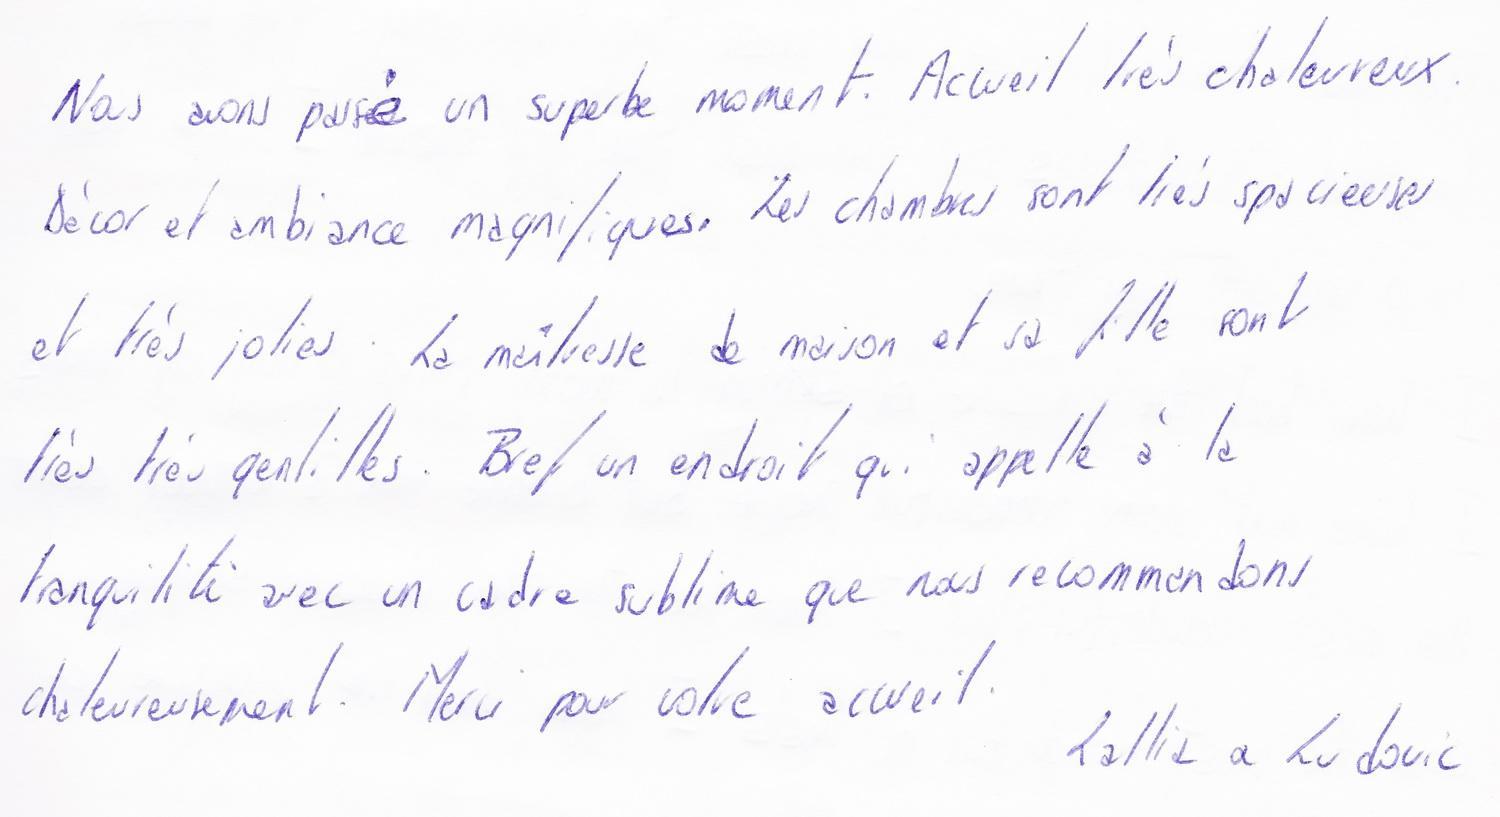 Nous avons passé un superbe moment. Accueil très chaleureux.
Décor et ambiance magnifiques. Les chambres sont très spacieuses
et très jolies. La maîtresse de maison et sa fille sont
très très gentilles. Bref un endroit qui appelle à la
tranquilité avec un cadre sublime que nous recommandons
chaleureusement. Merci pour votre accueil.
Ludovic